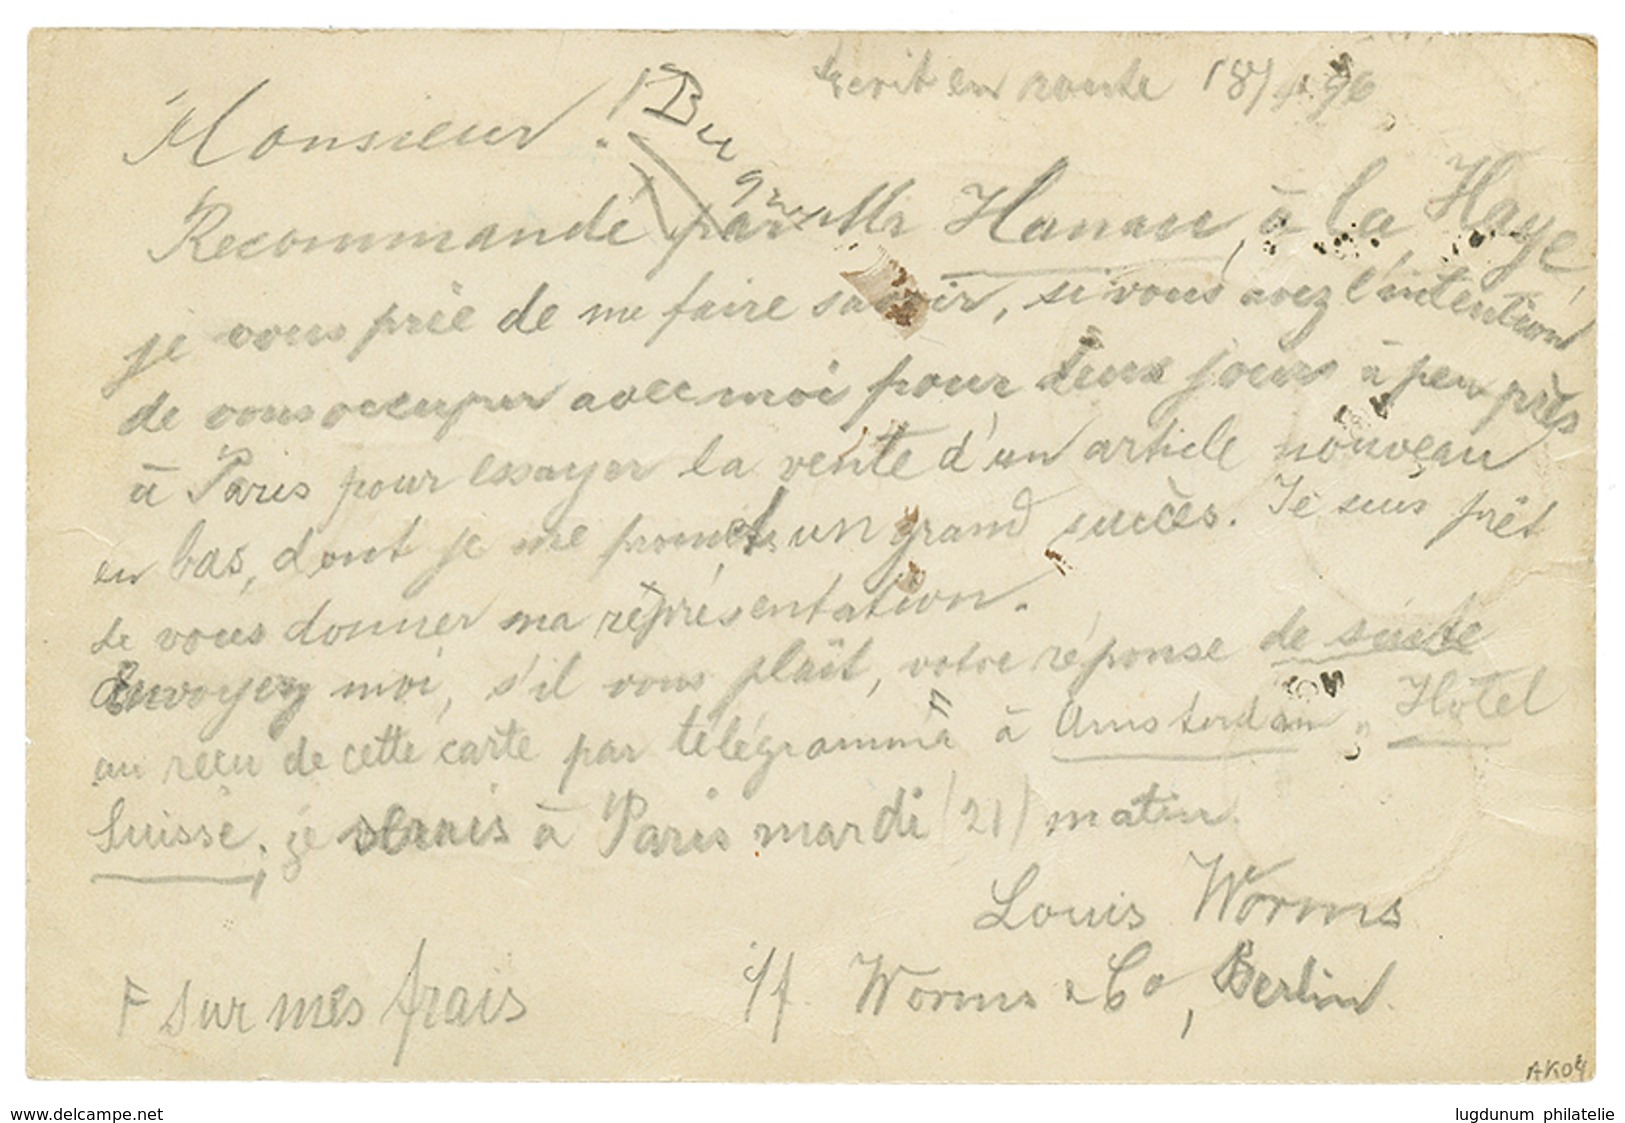 Ecrit en route 18/ 96
Monsieur!
Recommandé par Mr Hanau, à la Haye,
je vous prie de me faire savoir, si vous avez l'intention
de vous occuper avec moi pour deux jours à peu près
à Paris pour essayer la vente d'un article nouveau
en bas, dont je me promets un grand succès. Je suis prêt
de vous donner ma représentation.
Envoyez moi, s'il vous plaît, votre réponse de suite
au reçu de cette carte par télégramme à Amsterdam, Hotel
Suisse; je serais à Paris mardi (21) matin.
Louis Worms
i/f. Worms & Co, Berlin.
F Sur mes frais
AK04
www.delcampe.net
lugdunum philatelie